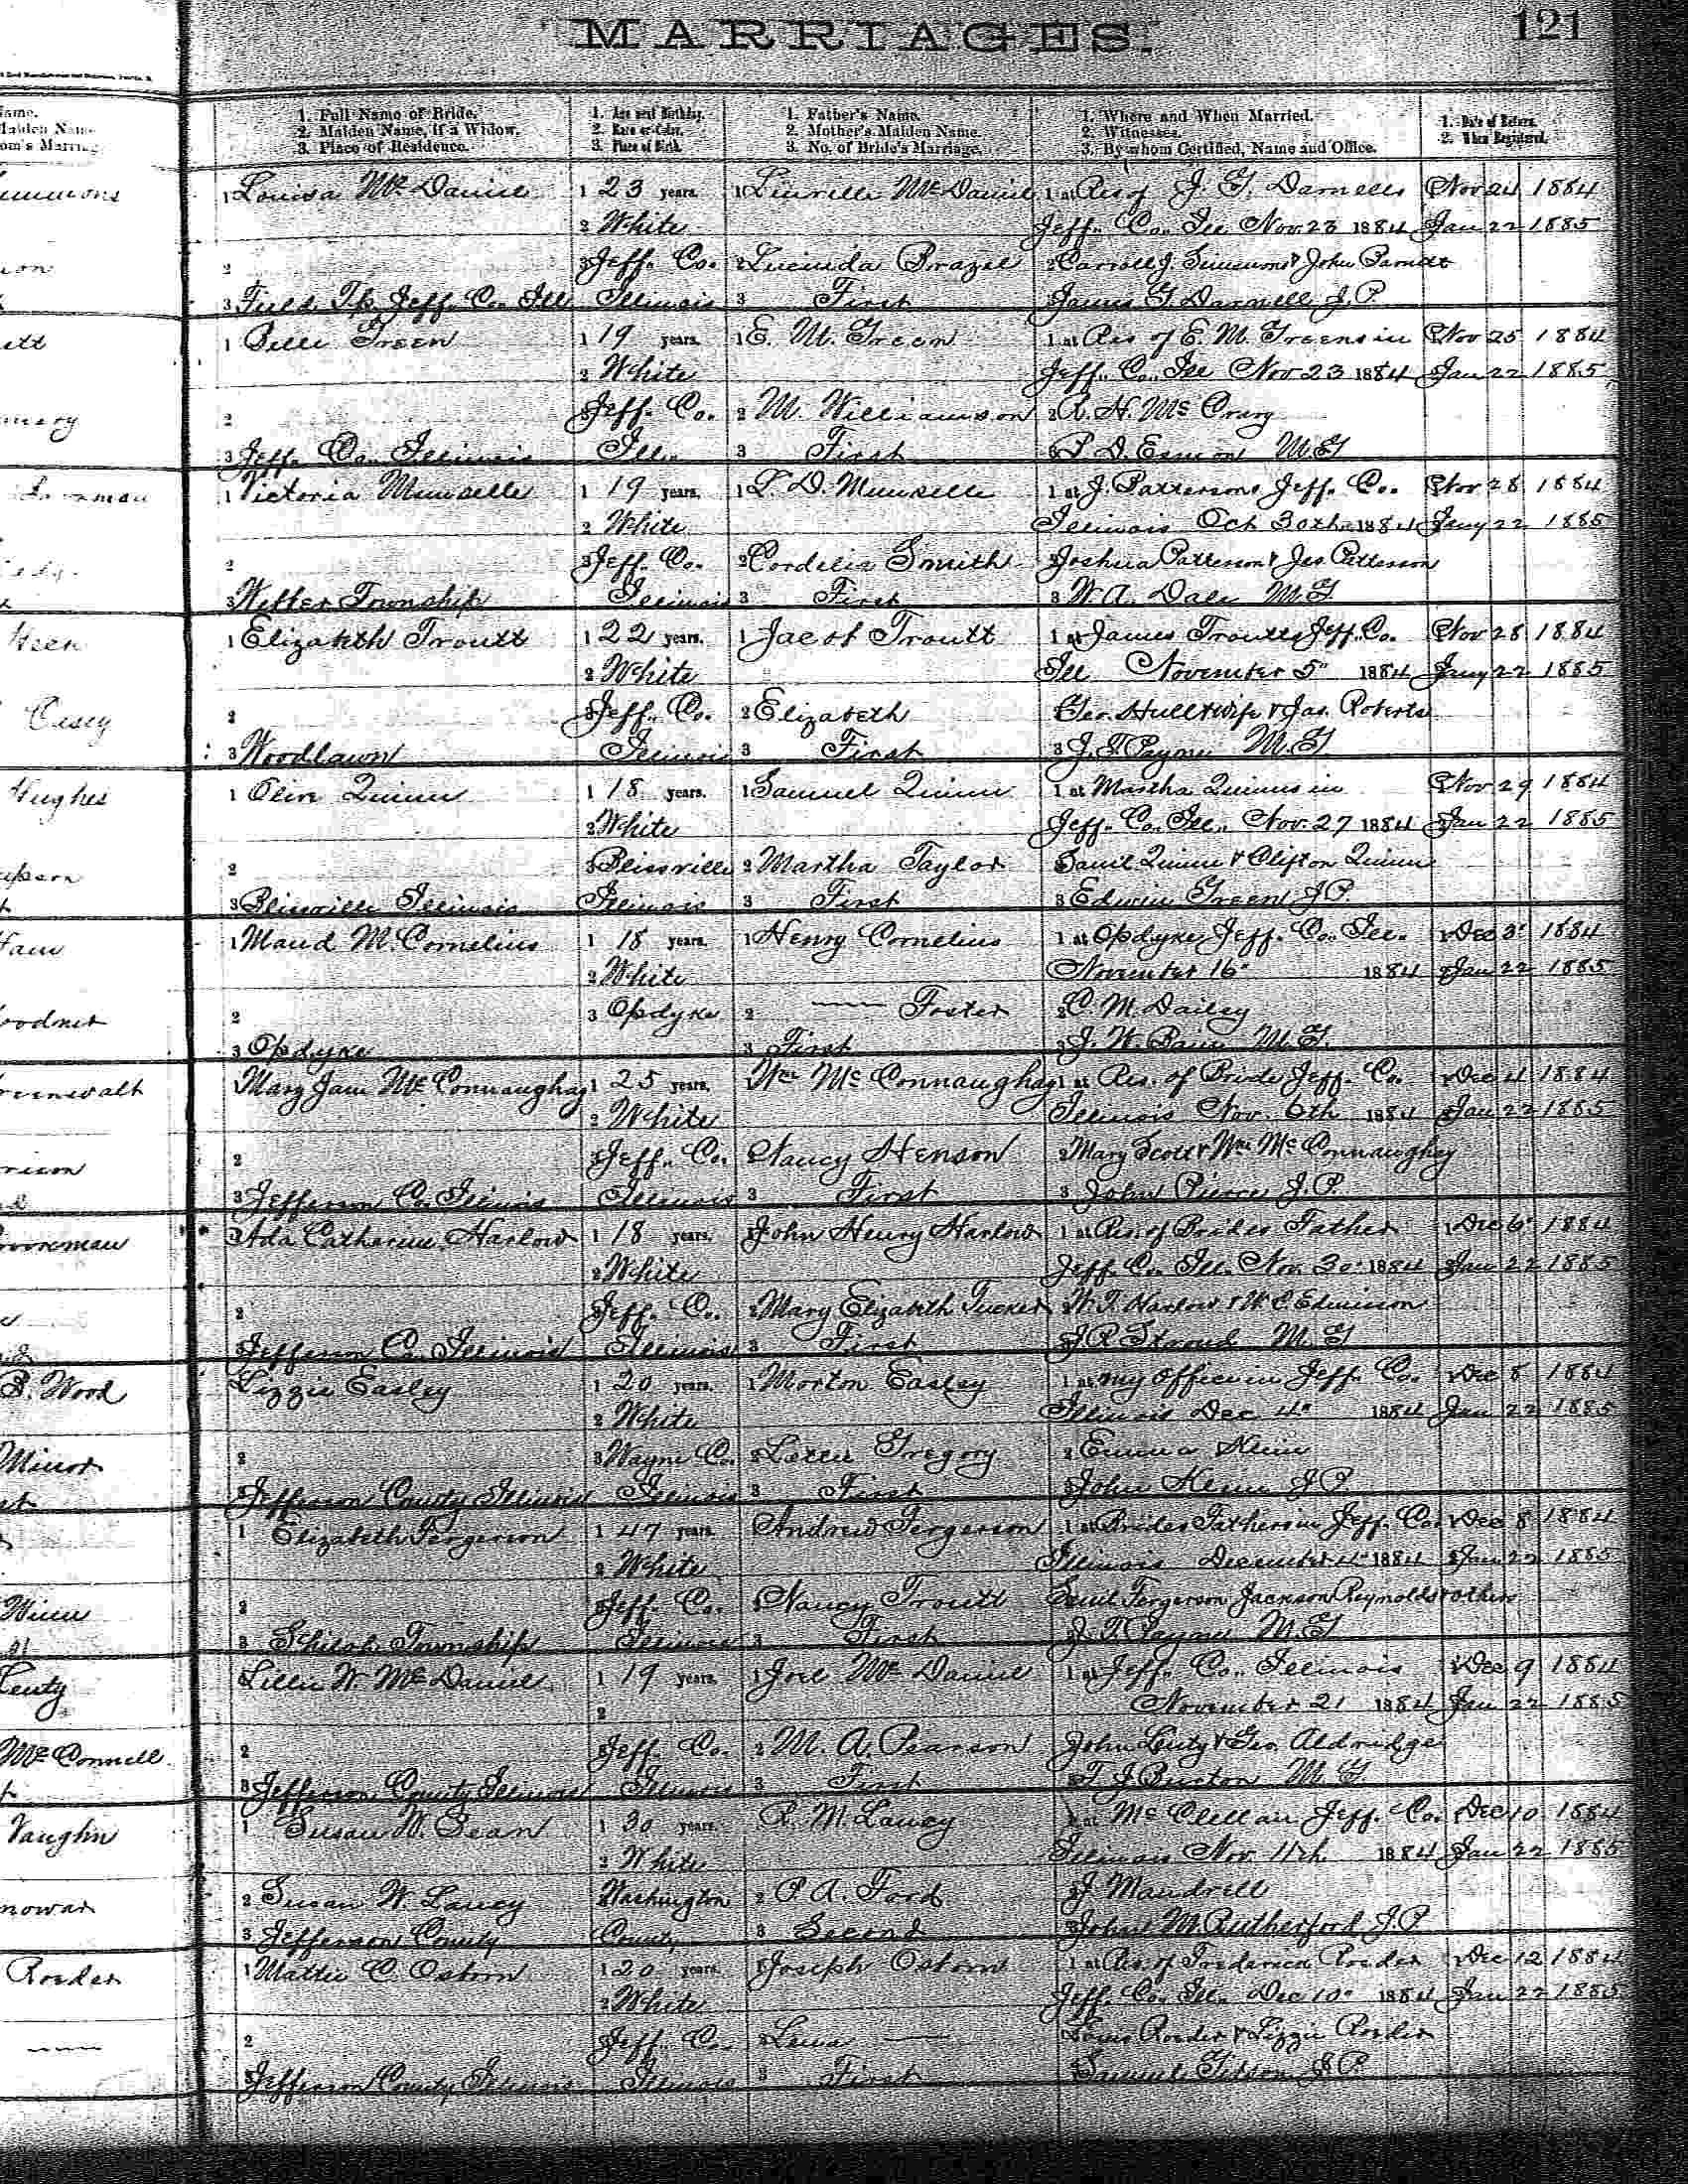 MARRIAGES.
121
1. Full Name of Bride.
2. Maiden Name, if a Widow.
3. Place of Residence.
1. Age next Birthday.
2. Race or Color.
3. Place of Birth.
1. Father's Name.
2. Mother's Maiden Name.
3. No. of Bride's Marriage.
1. Where and When Married.
2. Witnesses.
3. By whom Certified, Name and Office.
1. Date of Return.
2. When Registered.
1 Louisa Mc Daniel 1 23 years. 1 Mc Daniel 1 at Res of J. G. Darnells Nov 24 1884
2 White Jeff. Co. Ill Nov. 23 1884 Jan 22 1885
2 3 Jeff. Co. 2 Lucinda Brazel 2 Carroll J. Simmons & John
3 Field Tp Jeff. Co. Ill Illinois 3 First James G. Darnell J.P.
1 Belle Green 1 19 years. 1 E. M. Green 1 at Res of E. M. Greens in Nov 25 1884
2 White Jeff. Co. Ill Nov 23 1884 Jan 22 1885
2 3 Jeff. Co. 2 M. Williamson 2 A. H. Mc Crary
3 Jeff. Co. Illinois Ill. 3 First M G
1 Victoria Munselle 1 19 years. 1 L. D. Munselle 1 at J. Pattersons Jeff. Co. Nov 28 1884
2 White Illinois Oct 30th 1884 Jany 22 1885
2 3 Jeff. Co. 2 Cordelia Smith 2 Joshua Patterson & Jas Patterson
3 Township Illinois 3 First 3 W. A. Dale M.G
1 Elizabeth Troutt 1 22 years. 1 Jacob Troutt 1 at James Troutts Jeff. Co. Nov 28 1884
2 White Ill November 5" 1884 Jany 22 1885
2 3 Jeff. Co. 2 Elizabeth Geo. Hull & wife & Jas. Roberts
3 Woodlawn Illinois 3 First 3 J. T. Payne M.G
1 Olive Quinn 1 18 years. 1 Samuel Quinn 1 at Martha Quinns in Nov 29 1884
2 White Jeff. Co. Ill. Nov. 27 1884 Jan 22 1885
2 3 Blissville 2 Martha Taylor Saml Quinn & Clifton Quinn
3 Blissville Illinois Illinois 3 First 3 Edwin Green J.P.
1 Maud M. Cornelius 1 18 years. 1 Henry Cornelius 1 at Opdyke, Jeff. Co. Ill. Dec 3 1884
2 White November 16" 1884 Jan 22 1885
2 3 Opdyke 2 —— Foster 2 C. M. Dailey
3 Opdyke 3 First 3 J. W. M.G.
Mary Jane Mc Connaughay 1 25 years. Wm Mc Connaughay 1 at Res. of Bride Jeff. Co. Dec 4 1884
2 White Illinois Nov. 6th 1884 Jan 22 1885
2 3 Jeff. Co. 2 Nancy Henson 2 Mary Scott & Wm Mc Connaughay
3 Jefferson Co. Illinois Illinois 3 First 3 John Pierce J.P.
Ada Catharine Harlow 1 18 years. John Henry Harlow 1 at Res. of Brides Father Dec 6 1884
2 White Jeff. Co. Ill. Nov. 30 1884 Jan 22 1885
2 3 Jeff. Co. 2 Mary Elizabeth Tucker W. T. Harlow & W. C. Edminson
Jefferson Co. Illinois Illinois 3 First J. R. Stroud M.G
Lizzie Easley 1 20 years. 1 Morton Easley 1 at my office in Jeff. Co. Dec 8 1884
2 White Illinois Dec 4" 1884 Jan 22 1885
2 3 Wayne Co. 2 Gregory 2 Emma
Jefferson County Illinois Illinois 3 First John J.P.
1 Elizabeth Fergerson 1 47 years. Andrew Fergerson 1 at Brides Fathers in Jeff. Co. Dec 8 1884
2 White Illinois December 4" 1884 Jan 22 1885
2 3 Jeff. Co. Nancy Troutt Saml Fergerson Jackson Reynolds & others
3 Shiloh Township Illinois 3 First J. T. Payne M.G
Lillie W. Mc Daniel 1 19 years. 1 Joel Mc Daniel 1 at Jeff. Co. Illinois Dec 9 1884
2 November 21 1884 Jan 22 1885
2 Jeff. Co. 2 M. A. Pearson John Lenty & Geo. Aldridge
3 Jefferson County Illinois Illinois 3 First T. J. Burton M.G.
1 Susan W. Bean 1 30 years. R. M. Laney 1 at Mc Clellan Jeff. Co. Dec 10 1884
2 White Illinois Nov 11th 1884 Jan 22 1885
2 Susan W. Laney Washington 2 P. A. Ford 2 J. Mandrell
3 Jefferson County County 3 Second John M. Rutherford J.P.
1 Mattie C. Osborn 1 20 years. Joseph Osborn 1 at Res. of Frederick Roeder Dec 12 1884
2 White Jeff. Co. Ill. Dec 10" 1884 Jan 22 1885
2 Jeff. Co. —— Roeder & Lizzie Roeder
Jefferson County Illinois Illinois 3 First Samuel Gibson J.P.